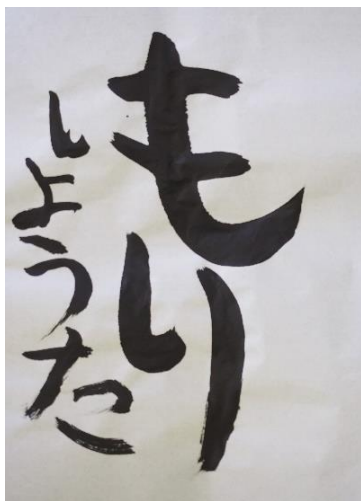 もり
しようた